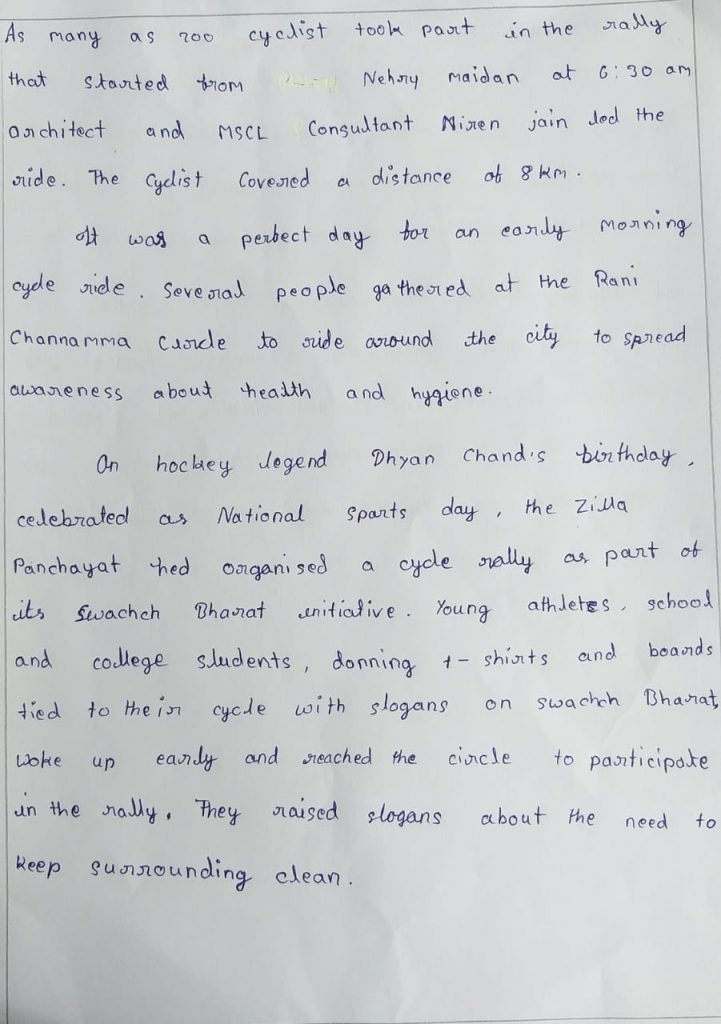 As many as 200 cyclist took part in the rally
that started from Nehry maidan at 6:30 am
architect and MSCL Consultant Niren jain led the
ride. The Cyclist Covered a distance of 8 km.
It was a perfect day for an early morning
cycle ride. Several people gathered at the Rani
Channamma Circle to ride around the city to spread
awareness about health and hygiene.
On hockey legend Dhyan Chand's birthday,
celebrated as National sparts day, the Zilla
Panchayat hed organised a cycle rally as part of
its Swachch Bharat initiative. Young athletes, school
and college students, donning t-shirts and boards
tied to their cycle with slogans on swachch Bharat,
woke up early and reached the circle to participate
in the rally. They raised slogans about the need to
keep surrounding clean.